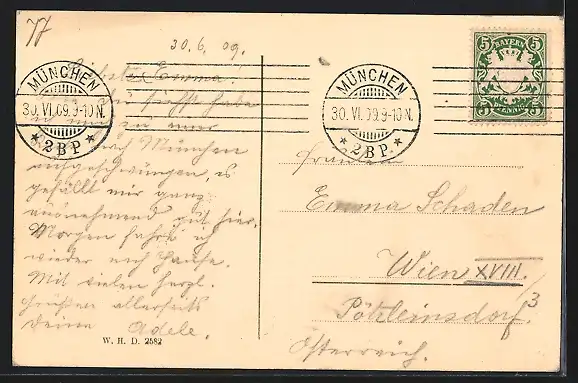 30.6.09.
Liebste Emma!
München
aufgeschwungen, es
gefällt mir ganz
ausnehmend gut hier.
Morgen fahre ich
wieder nach Hause.
Mit vielen herzl.
Grüßen allerseits
deine Adele.
W. H. D. 2582
MÜNCHEN
30. VI. 09. 9-10 N.
* 2 B.P. *
MÜNCHEN
30. VI. 09. 9-10 N.
* 2 B.P. *
5 BAYERN 5
5 PFENNIG 5
Fräulein
Emma Schaden
Wien XVIII.
Pötzleinsdorf.
Österreich.